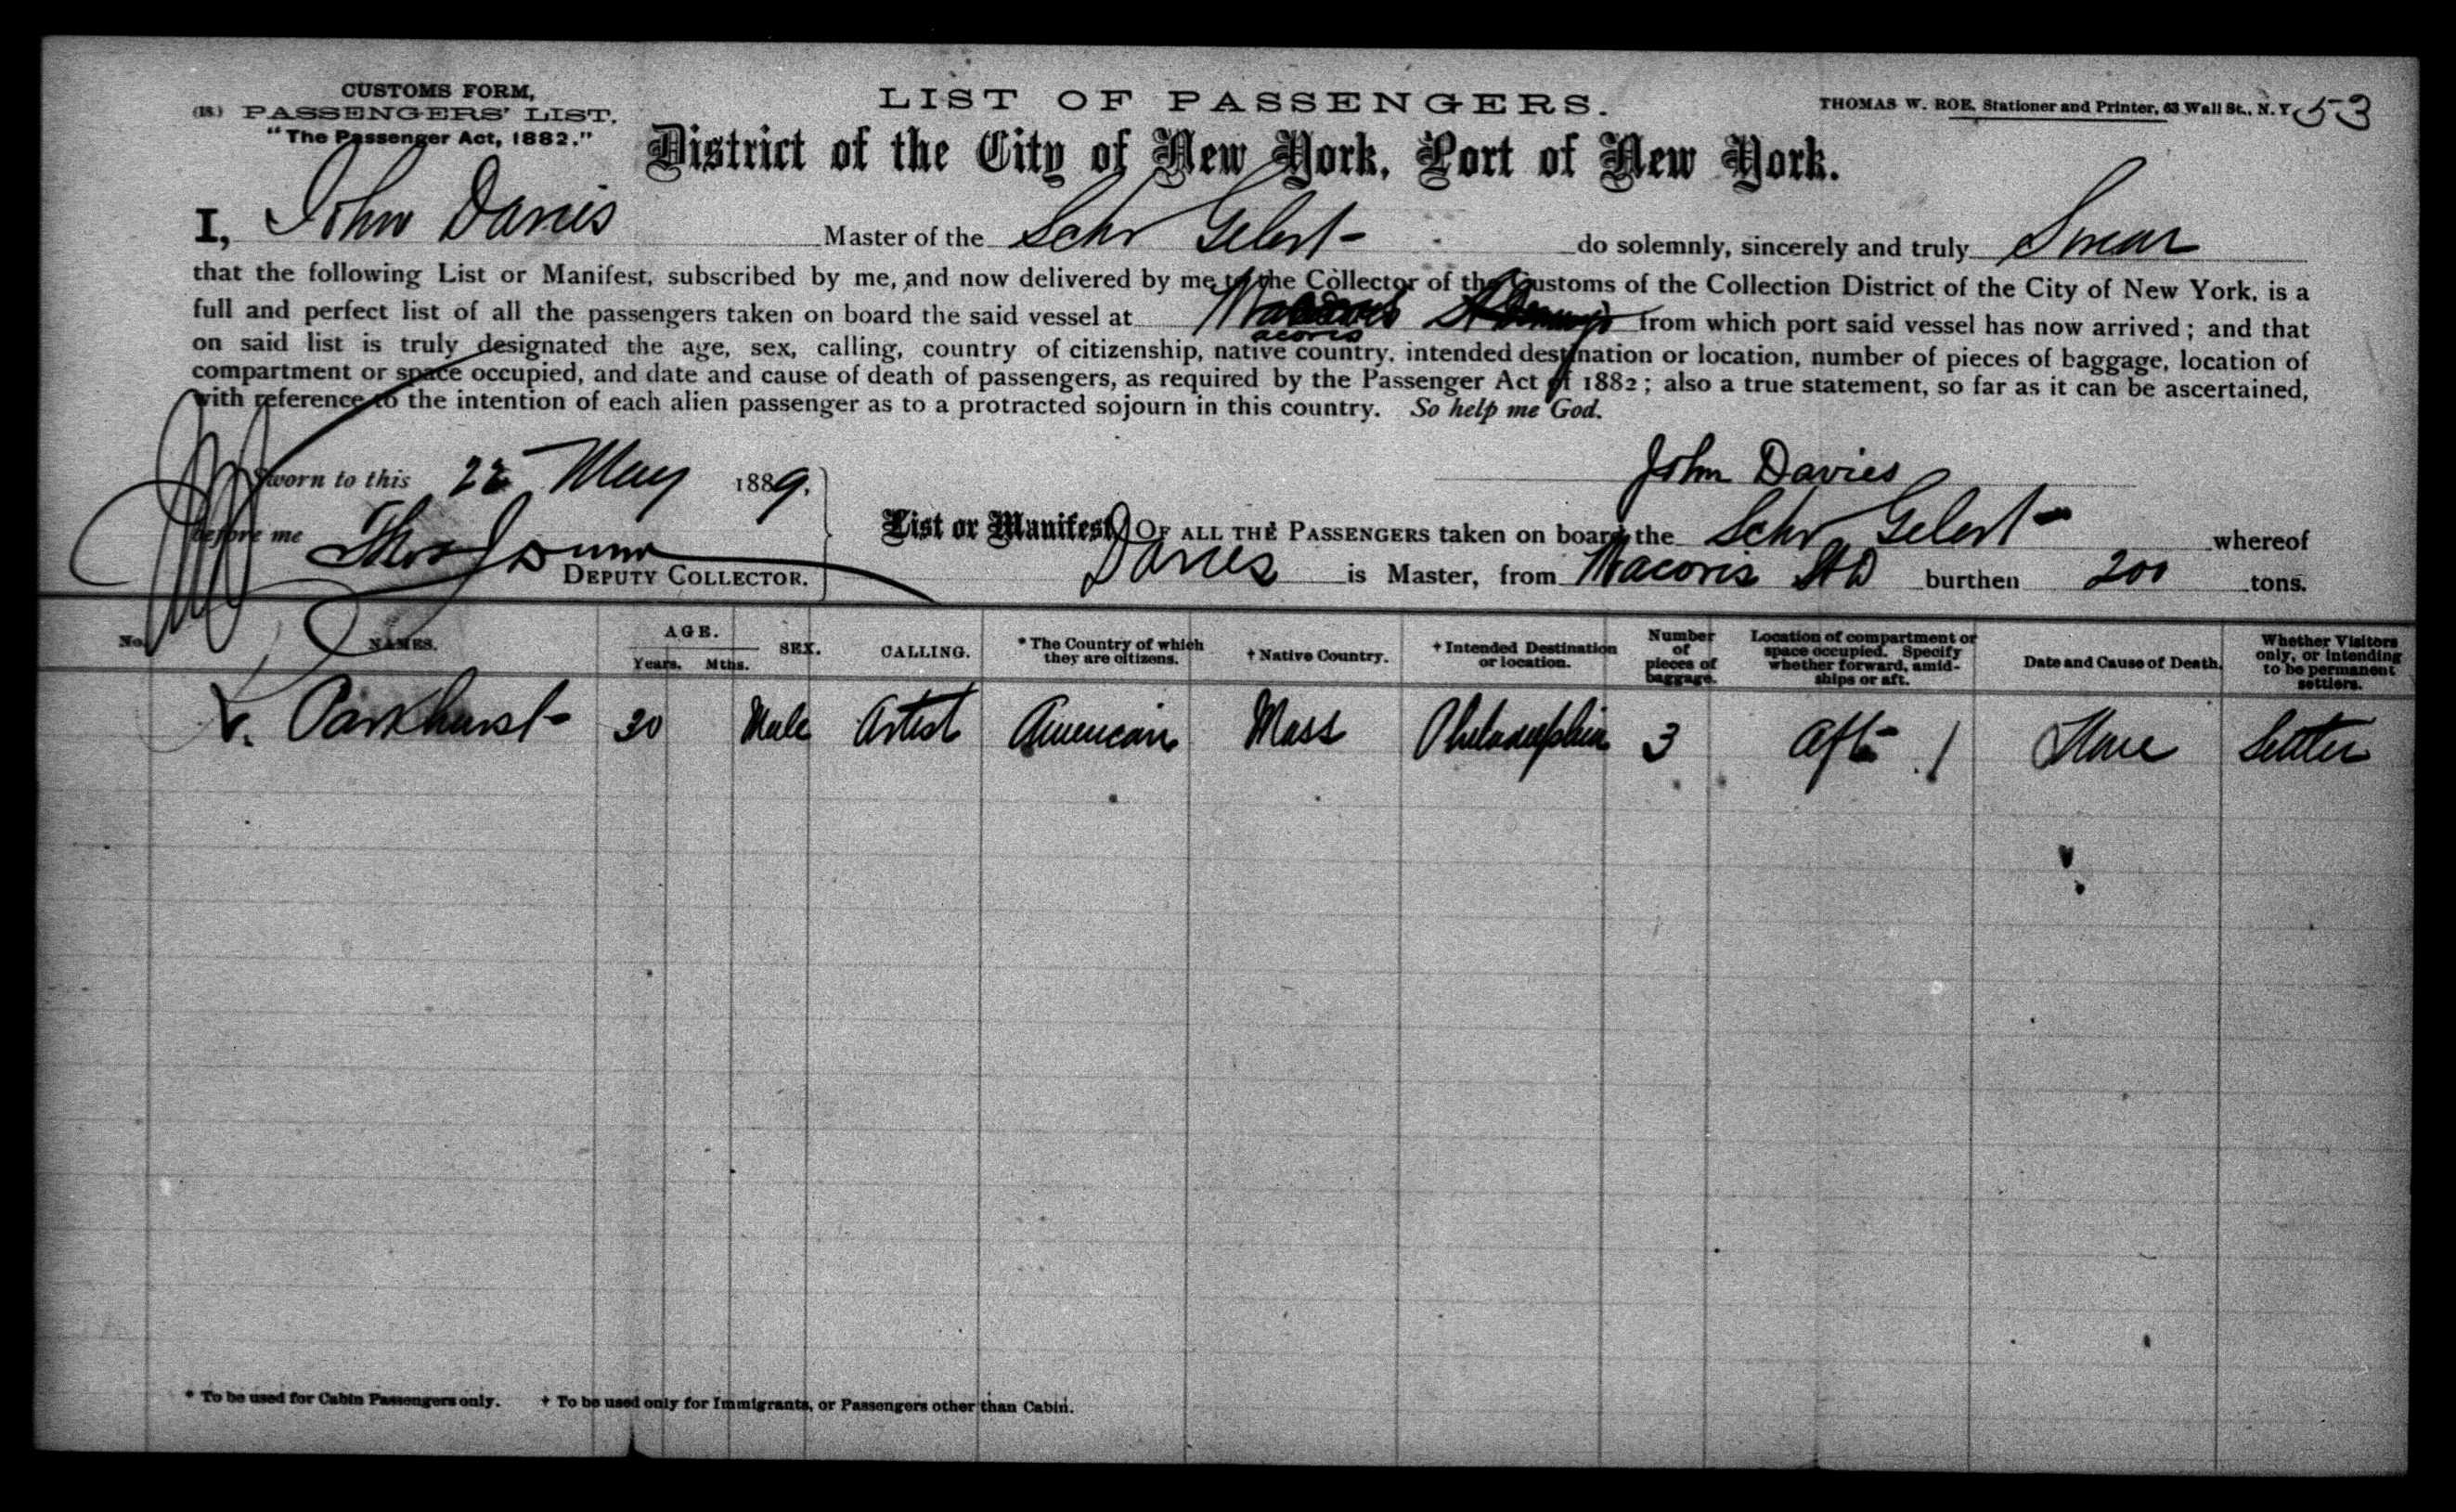 CUSTOMS FORM,
(18) PASSENGERS' LIST.
"The Passenger Act, 1882."
LIST OF PASSENGERS.
THOMAS W. ROE, Stationer and Printer, 63 Wall St., N.Y.
53
District of the City of New York, Port of New York.
I, John Davies Master of the Schr Gelert do solemnly, sincerely and truly Swear
that the following List or Manifest, subscribed by me, and now delivered by me to the Collector of the Customs of the Collection District of the City of New York, is a
full and perfect list of all the passengers taken on board the said vessel at Macoris from which port said vessel has now arrived; and that
acoris
on said list is truly designated the age, sex, calling, country of citizenship, native country, intended destination or location, number of pieces of baggage, location of
compartment or space occupied, and date and cause of death of passengers, as required by the Passenger Act of 1882; also a true statement, so far as it can be ascertained,
with reference to the intention of each alien passenger as to a protracted sojourn in this country. So help me God.
Sworn to this 22 May 1889.
John Davies
before me Thos Dunn
DEPUTY COLLECTOR.
List or Manifest, OF ALL THE PASSENGERS taken on board the Schr Gelert whereof
Davies is Master, from Macoris St D burthen 200 tons.
No. NAMES. AGE. Years. Mths. SEX. CALLING. * The Country of which they are citizens. † Native Country. † Intended Destination or location. Number of pieces of baggage. Location of compartment or space occupied. Specify whether forward, amidships or aft. Date and Cause of Death. Whether Visitors only, or intending to be permanent settlers.
Parkhurst 30 Male Artist American Mass Philadelphia 3 Aft 1 Settler
* To be used for Cabin Passengers only. † To be used only for Immigrants, or Passengers other than Cabin.